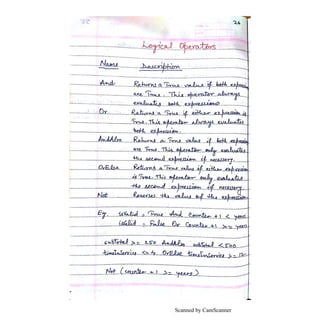 26
Logical Operators
Name Description
And Returns a True value if both expression
are True. This operator always
evaluates both expressions
Or Returns a True if either expression is
True. This operator always evaluates
both expression.
AndAlso Returns a True value if both expression
are True. This operator only evaluates
the second expression if necessary.
OrElse Returns a True value if either expression
is True. This operator only evaluates
the second expression if necessary.
Not Reverses the value of the expression
Eg. isValid = True And Counter + 1 < years
isValid = False Or Counter + 1 >= years
subtotal >= 250 AndAlso subtotal < 500
timeInService <= 4 OrElse timeInService >= 12
Not (counter + 1 >= years)
Scanned by CamScanner